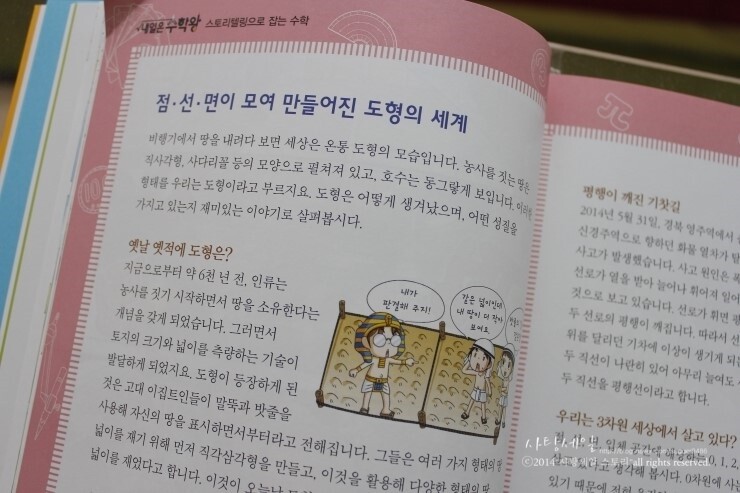 내일은 수학왕 스토리텔링으로 잡는 수학
점·선·면이 모여 만들어진 도형의 세계
비행기에서 땅을 내려다 보면 세상은 온통 도형의 모습입니다. 농사를 짓는 땅은
직사각형, 사다리꼴 등의 모양으로 펼쳐져 있고, 호수는 동그랗게 보입니다. 이러한
형태를 우리는 도형이라고 부르지요. 도형은 어떻게 생겨났으며, 어떤 성질을
가지고 있는지 재미있는 이야기로 살펴봅시다.
옛날 옛적에 도형은?
지금으로부터 약 6천 년 전, 인류는
농사를 짓기 시작하면서 땅을 소유한다는
개념을 갖게 되었습니다. 그러면서
토지의 크기와 넓이를 측량하는 기술이
발달하게 되었지요. 도형이 등장하게 된
것은 고대 이집트인들이 말뚝과 밧줄을
사용해 자신의 땅을 표시하면서부터라고 전해집니다. 그들은 여러 가지 형태의 땅
넓이를 재기 위해 먼저 직각삼각형을 만들고, 이것을 활용해 다양한 형태의 땅
넓이를 재었다고 합니다. 이것이 오늘날
내가
판결해 주지!
같은 넓이인데
내 땅이 더 작아
보여요.
평행이 깨진 기찻길
2014년 5월 31일, 경북 영주역에서
신경주역으로 향하던 화물 열차가 탈
사고가 발생했습니다. 사고 원인은
선로가 열을 받아 늘어나 휘어져 일어
것으로 보고 있습니다. 선로가 휘면 평
두 선로의 평행이 깨집니다. 따라서 선
위를 달리던 기차에 이상이 생기게 되는
두 직선이 나란히 있어 아무리 늘여도
두 직선을 평행선이라고 합니다.
우리는 3차원 세상에서 살고 있다?
점, 선, 면, 입체 공간
생각해 봅시다. 0차원에 사는
있기 때문에
사랑세일
ⓒ2014 all rights reserved.